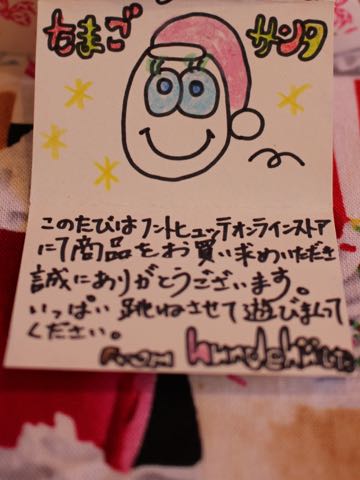 たまご サンタ
このたびはフントヒュッテオンラインストア
にて商品をお買い求めいただき
誠にありがとうございます。
いっぱい跳ねさせて遊びまくって
ください。
From hundehütte